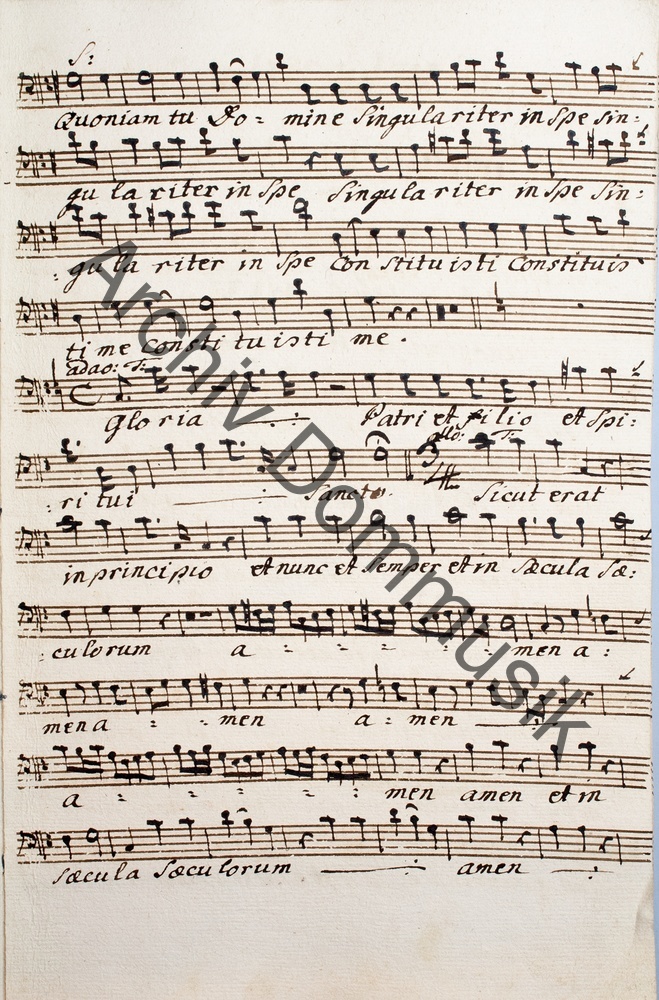 S:
Quoniam tu Do = mine Singulariter in Spe sin =
gulariter in Spe Singulariter in Spe Sin =
: gulariter in Spe Constituisti Constituis
ti me Constituisti me .
adao: T:
Gloria Patri et filio et Spi :
: ritui Sancto . Sicut erat
allo: T:
in principio et nunc et Semper et in Sæcula Sæ :
: culorum a = = = = = men a :
men a = = men a = men
a = = = = : men amen et in
Sæcula Sæculorum amen
Archiv Dommusik